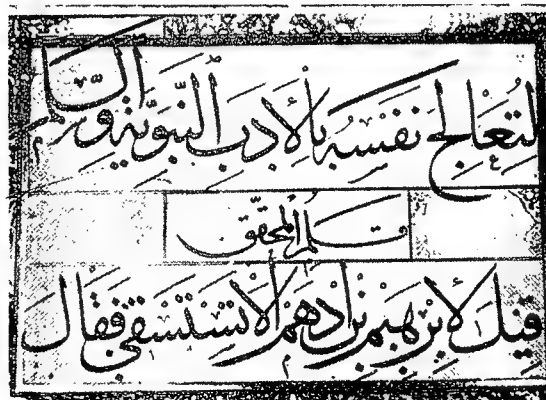 لتُعَالجَ نفسُه بالأدَب النّبَويّة
قلم المحقق
قيلَ لإبرهيم بن ادهم ألا تستسقى فقال